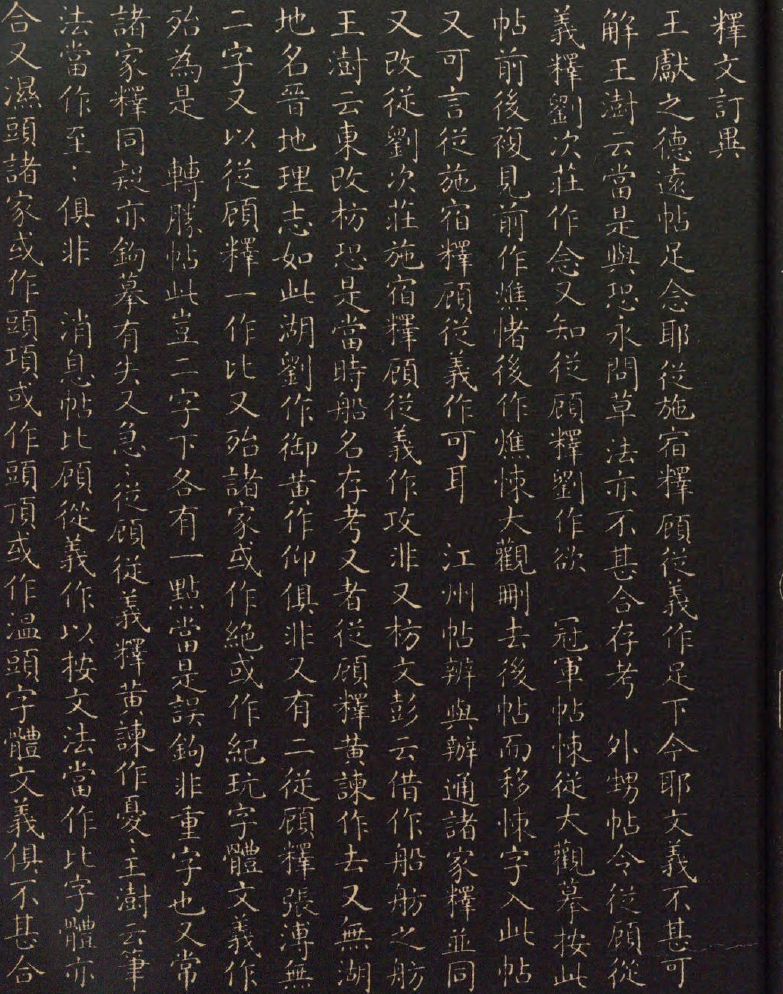 釋文訂異
王獻之德遠帖足念耶從施宿釋顧從義作足下今耶文義不甚可
解王澍云當是與恐永問草法亦不甚合存考 外甥帖令從顧從
義釋劉次莊作念又知從顧釋劉作欲 冠軍帖悚從大觀摹按此
帖前後複見前作燋悚後作燋悚大觀刪去後帖而移悚字入此帖
又可言從施宿釋顧從義作可耳 江州帖辨與辦通諸家釋並同
又改從劉次莊施宿釋顧從義作攻非又枋文彭云借作船舫之舫
王澍云東改枋恐是當時船名存考又者從顧釋黃諫作去又無湖
地名晉地理志如此湖劉作御黃作仰俱非又有二從顧釋張溥無
二字又以從顧釋一作比又殆諸家或作絶或作紀玩字體文義作
殆為是 轉勝帖此豈二字下各有一點當是誤鉤非重字也又常
諸家釋同疑亦鉤摹有失又急〻從顧從義釋黃諫作憂〻王澍云筆
法當作至〻俱非 消息帖比顧從義作以按文法當作比字體亦
合又濕頭諸家或作頭項或作頭頂或作溫頭字體文義俱不甚合